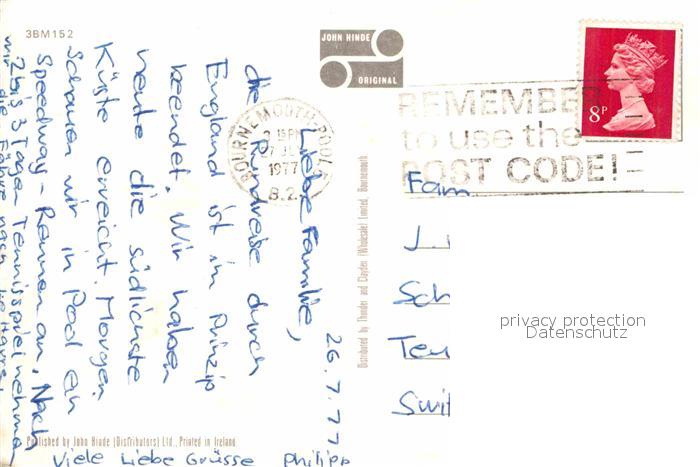 3BM152
JOHN HINDE
ORIGINAL
BOURNEMOUTH-POOLE
1977
REMEMBER
to use the
POST CODE!
8P
26.7.77
Liebe Familie,
die Rundreise durch
England ist im Prinzip
beendet. Wir haben
heute die südlichste
Küste erreicht. Morgen
schauen wir in Pool ein
Speedway-Rennen an. Nach
2 bis 3 Tagen Tennisspiel nehmen
wir die Fähre nach
Viele Liebe Grüsse Philipp
Fam
J
Sch
Swit
privacy protection
Datenschutz
Distributed by Thunder and Clayden (Wholesale) Limited, Bournemouth
Published by John Hinde (Distributors) Ltd., Printed in Ireland